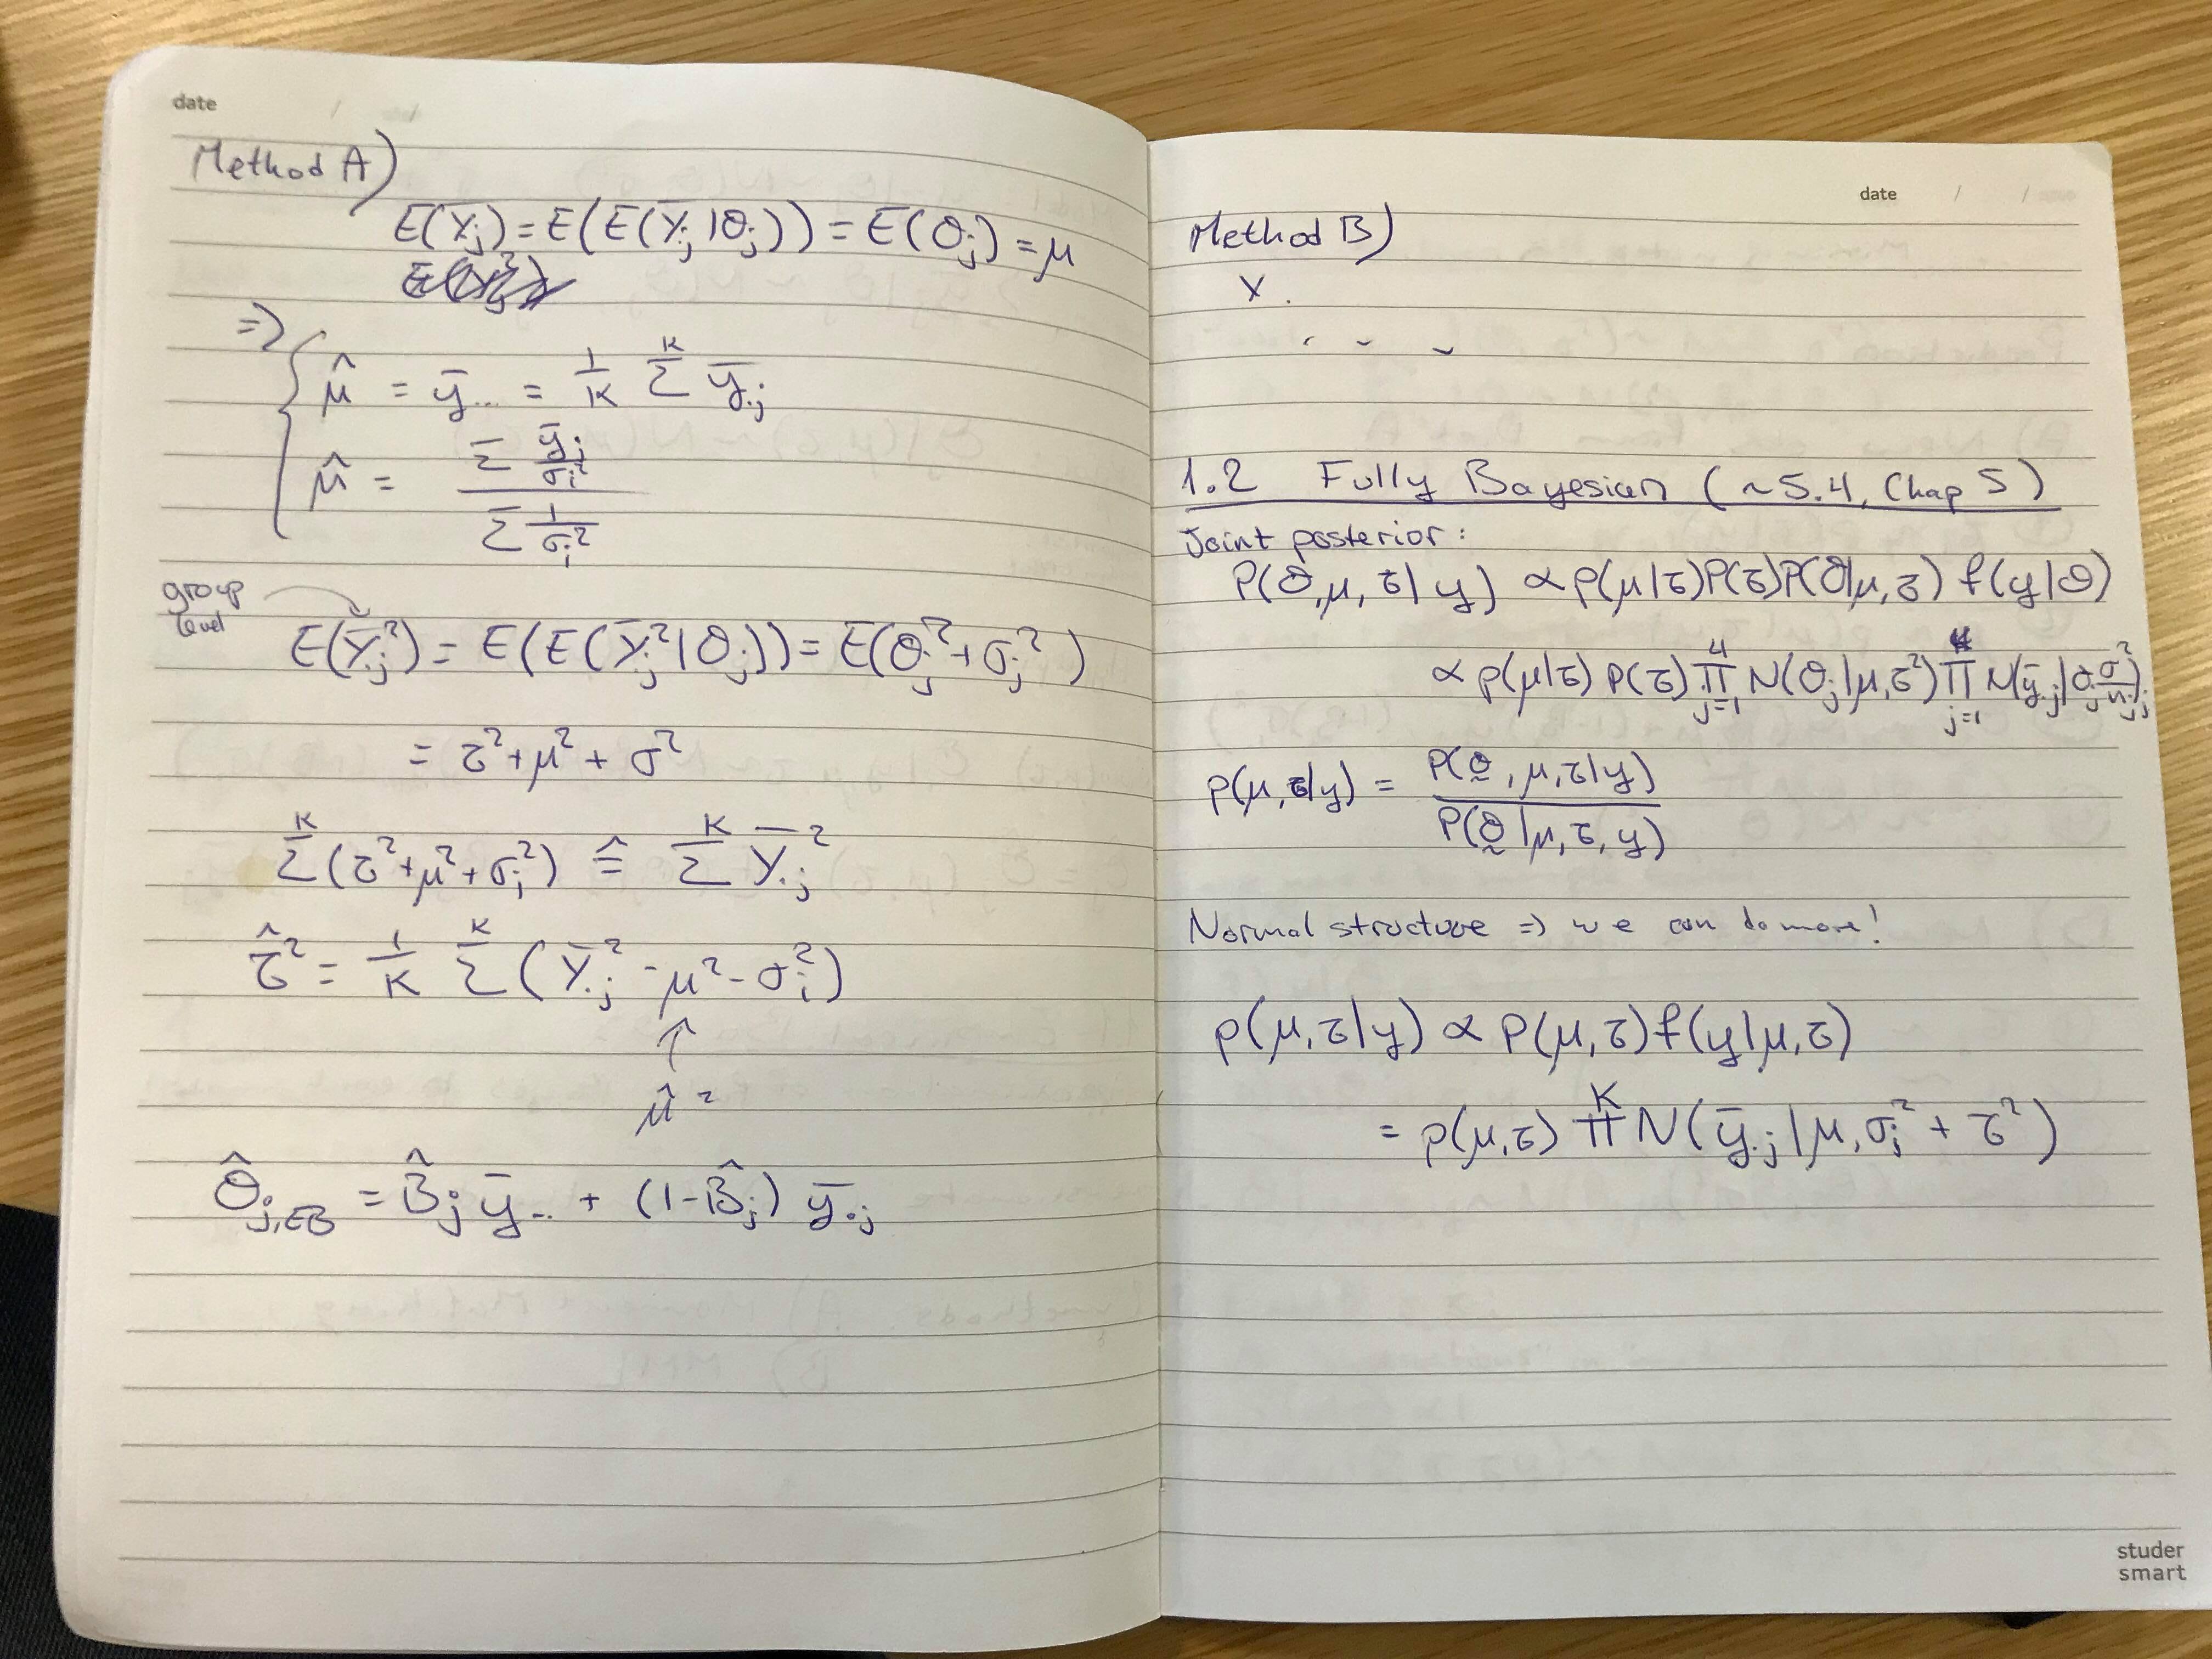 date
Method A)
E(Ȳ.j) = E(E(Ȳ.j|θj)) = E(θj) = μ
⇒ { μ̂ = ȳ.. = 1/K Σ^K ȳ.j
μ̂ = (Σ ȳ.j/σj²) / (Σ 1/σj²)
group level
E(Ȳ.j²) = E(E(Ȳ.j²|θj)) = E(θj² + σj²)
= τ² + μ² + σ²
Σ^K (τ² + μ² + σj²) ≙ Σ^K Ȳ.j²
τ̂² = 1/K Σ^K (Ȳ.j² - μ² - σj²)
↑
μ̂²
θ̂j,EB = B̂j ȳ.. + (1-B̂j) ȳ.j
date / /
Method B)
1.2 Fully Bayesian (~5.4, Chap 5)
Joint posterior:
P(θ, μ, τ|y) ∝ p(μ|τ)P(τ)P(θ|μ,τ) f(y|θ)
∝ p(μ|τ) P(τ) ∏_{j=1}^4 N(θj|μ,τ²) ∏_{j=1}^4 N(ȳ.j|θj, σ²/nj)
p(μ,τ|y) = P(θ, μ, τ|y) / P(θ|μ, τ, y)
Normal structure ⇒ we can do more!
p(μ,τ|y) ∝ P(μ,τ) f(y|μ,τ)
= p(μ,τ) ∏^K N(ȳ.j|μ, σj² + τ²)
studer
smart